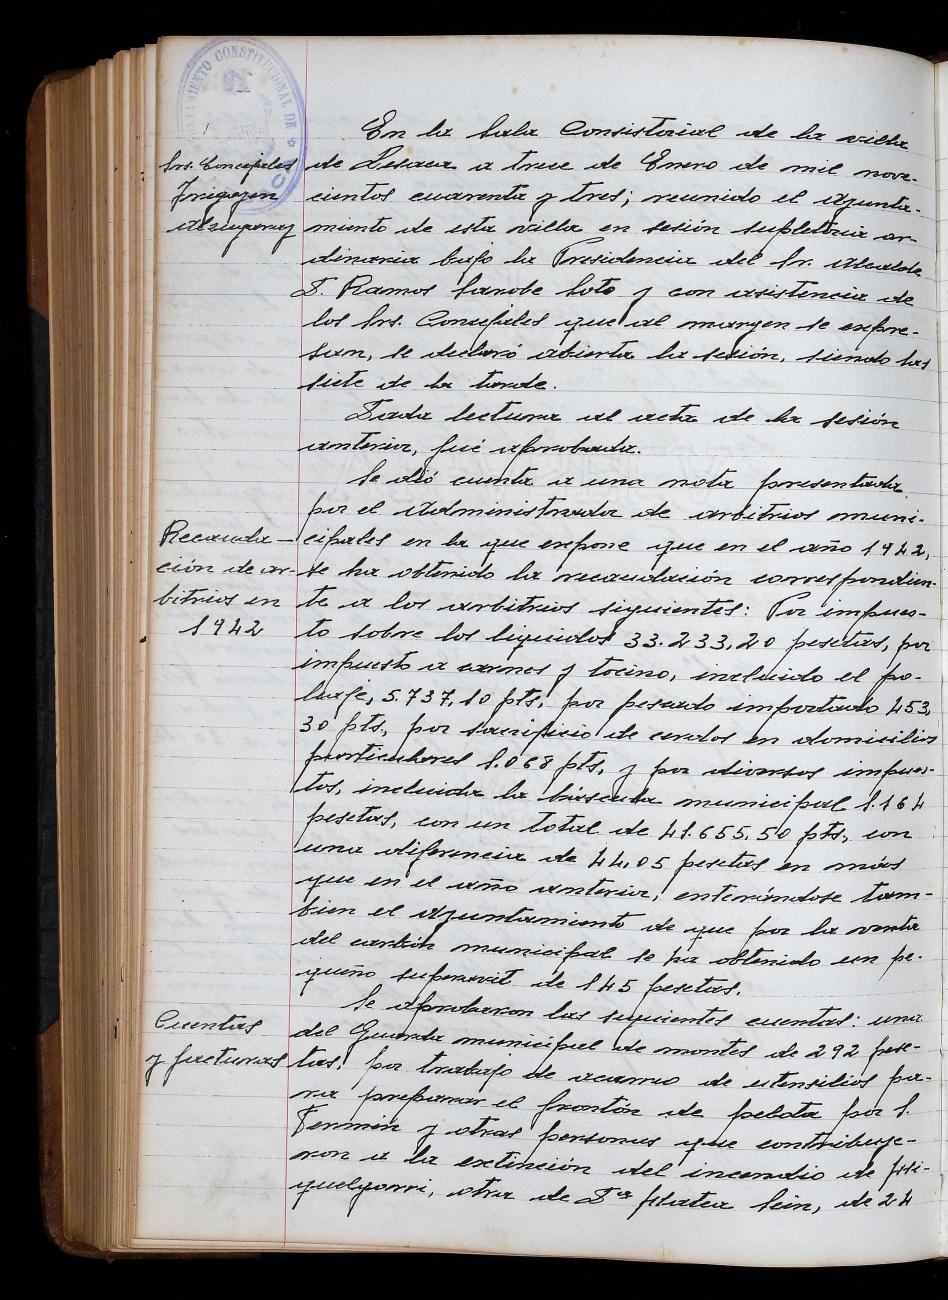 AYUNTAMIENTO CONSTITUCIONAL DE
Srs. Concejales
Irigoyen
Alzugaray
En la Sala Consistorial de la villa
de Lesaca a trece de Enero de mil nove-
cientos cuarenta y tres; reunido el Ayunta-
miento de esta villa en sesión supletoria or-
dinaria bajo la Presidencia del Sr. Alcalde
D. Ramos Sanobe Soto y con asistencia de
los Srs. Concejales que al margen se expre-
san, se declaró abierta la sesión, siendo las
siete de la tarde.
Dada lectura al acta de la sesión
anterior, fué aprobada.
Recauda-
ción de ar-
bitrios en
1942
Se dió cuenta a una nota presentada
por el Administrador de arbitrios muni-
cipales en la que expone que en el año 1942,
se ha obtenido la recaudación correspondien-
te a los arbitrios siguientes: Por impues-
to sobre los líquidos 33.233,20 pesetas, por
impuesto a carnes y tocino, incluido el po-
luaje, 5.737,10 pts, por pescado importado 453,
30 pts., por sacrificio de cerdos en domicilios
particulares 1.068 pts, y por diversos impues-
tos, incluida la báscula municipal 1.164
pesetas, con un total de 41.655,50 pts., con
una diferencia de 44,05 pesetas en más
que en el año anterior, enterándose tam-
bien el Ayuntamiento de que por la venta
del carbón municipal se ha obtenido un pe-
queño superavit de 145 pesetas.
Cuentas
y facturas
Se aprobaron las siguientes cuentas: una
del Guarda municipal de montes de 292 pese-
tas, por trabajo de acarreo de utensilios pa-
ra preparar el frontón de pelota por S.
Fermin y otras personas que contribuye-
ron a la extinción del incendio de
otra de Dª Matea Sein, de 24